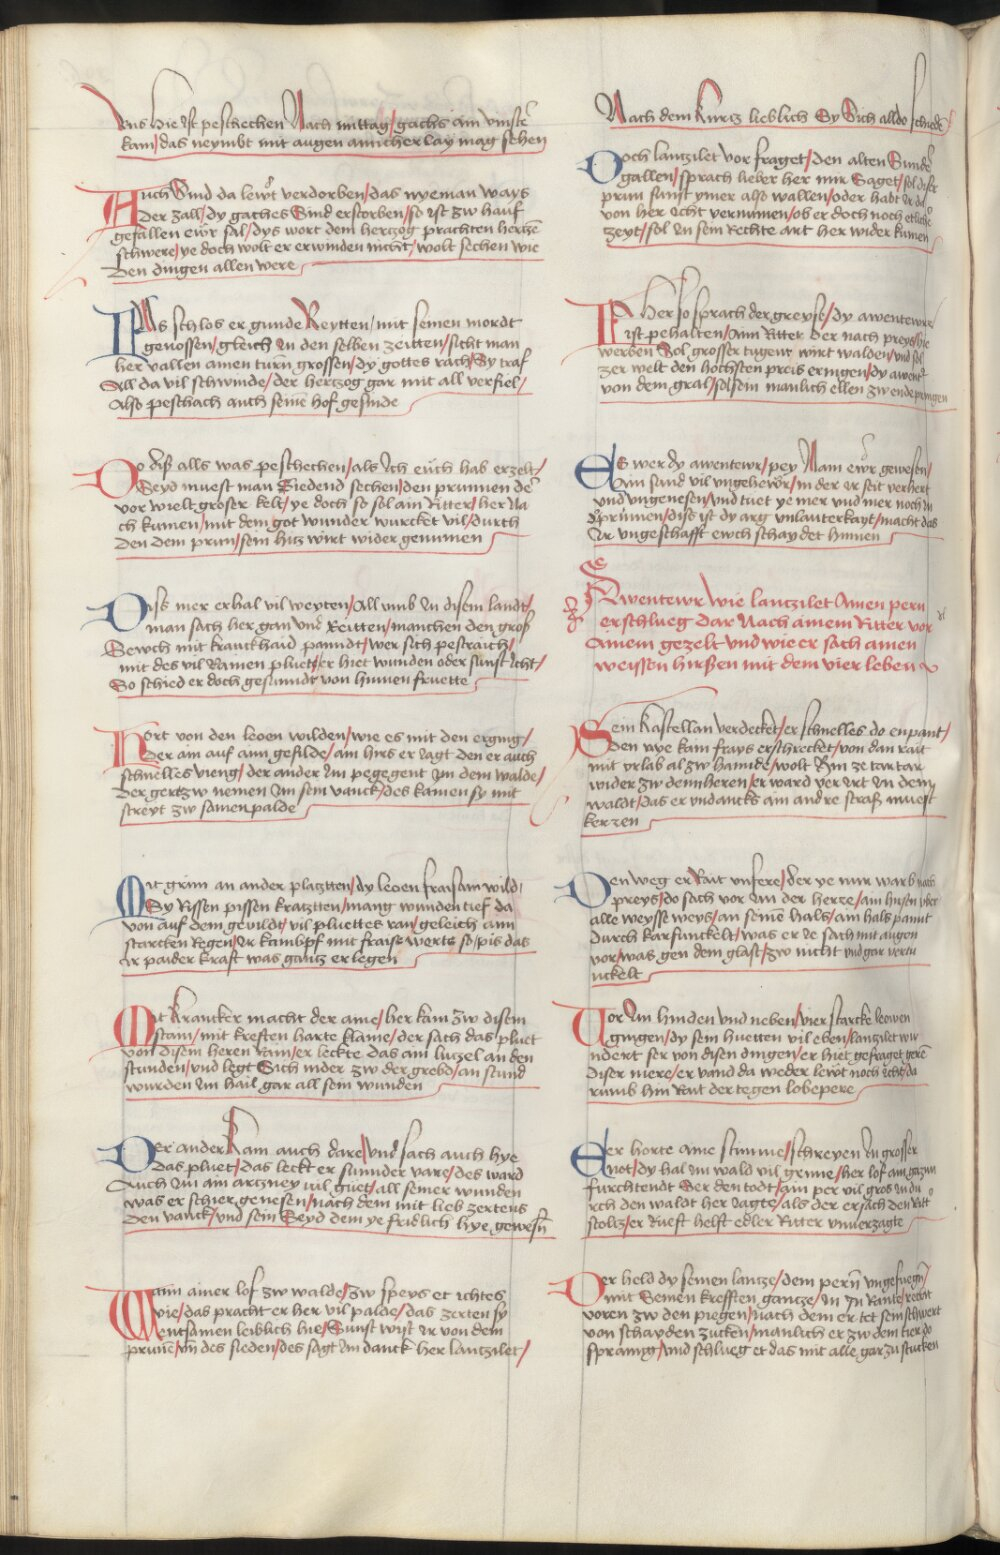 Uns hie ist peschechen Nach mittag/gachs ain vinster
kam/das neymbt mit augen ainicher lay mag sehen
Auch Sind da lewt verdorben/das nyeman ways
Der zall/dy gaches Sind erstorben/so ist zw hauf
gefallen ewr sal/dys wort dem hertzog prachten hertzen
schwere/ye doch wolt er erwinden nicht/wolt sechen wie
den dingen allen were
Als schlos er gunde Reytten/mit seinen mordt
genossen/gleich in den selben zeitten/sicht man
her vallen ainen turn grossen/dy gottes rach/Sy traf
All da vil schwinde/der hertzog gar mit all verfiel/
Also peschach auch seinem hof gesinde
Do diß alls was peschechen/als Ich euch hab erzelt/
Seyd muest man Siedend sechen/den prunnen de
vor wielt groser kelt/ye doch so sol ain Ritter/her Na
ch kumen/mit dem got wunder wurcket vil/durch
Den dem prun/sein hitz wirt wider genumen
Diß mer erhal vil weyten/All vmb in disem landt/
man sach her gan vnd Reitten/manchen den groß
Sewch mit kranckhaid panndt/wer sich pestraich/
mit des vil Namen pluetz/er hiet wunden oder sunst icht/
So schied er doch gesunndt von hinnen fruette
Hort von den leoen wilden/wie es mit den erging/
Der ain auf ainn gefilde/ain hirs er iagt den er auch
schnelles vieng/der ander im pegegent Im dem walde/
Der gertzw nemen im sein vanck/des kamen sy mit
streyt zw samen palde
Mit grim an ander plaztten/dy leoen fraisam wild/
Sy Rissen pissen kratztten/mang wunden tief da
von auf dem gevildt/vil pluettes ran/geleich aim
starcken Regen/ir kambpf mit fraise werte so/pis das
ir paider kraft was gantz erlegen
Mit krancker macht der aine/her kam zw disem
stain/mit kreften harte klaine/der sach das pluet
von disem heren rain/er leckte das ain luzel an den
stunden/vnd legt Sich nider zw der grebd/an stund
wurden im hail gar all sein wunden
Der ander kam auch dare/vnd sach auch hye
das pluet/das leckt er sunnder vare/des ward
Auch im ain artzney vil guet/all seiner wunden
was er schier genesen/nach dem mit lieb zertens
den vanck/vnd sein Seyd dem ye fridlich hye gewesn
Wann ainer lof zw walde/zw speys et ichtes
vie/das pracht er her vil palde/das zerten sy
entsamen leiblich hie/Sunst wist ir von dem
prunen/vn des sieden/des sagt im danck her lantzilet/
Nach dem kurtz lieblich Sy Sich alldo schiede
Doch lantzilet vor fraget/den alten Sunde
gallen/sprach lieber her mir Saget/sol diser
prun sunst ymer also wallen/oder habt ir da
von her icht vernumen/ob er doch noch etliche
zeyt/sol in sein Rechte art her wider kumen
Ja her so sprach der greyse/dy awentewr
ist pehalten/Ainn Ritter der nach preys/hie
werben Sol grosser tugent wirt walden/vnd sol
zer welt den hochsten preis eringen/dy awent
von dem gral/sol sein manlich ellen zw ende pringen
Es wer dy awentewr/pey Nam ewr gewesen/
Ain sund vil vngehewr/in der ir seit verhert
vnd vngenesen/vnd tuet ye mer vnd mer noch in
prunnen/diß ist dy arg vnlauterkayt/macht das
Ir vngeschafft ewch schaydet hinnen
Awentewr wie lantzilet Ainen pern
erschlueg Dar Nach ainem Ritter vor
Ainem gezelt vnd wie er sach ainen
weyssen hirßen mit dem vier leben
Sein kastellan verdecket/er schnelles do enpant/
den nye kain frays erschrecket/von dan rait
mit vrlab al zw hannde/wolt hin ze tartar
wider zw dennheren/er ward ver irt in dem
waldt/das er vndancks ain andre straß muest
kerzen
Den weg er Rait vnsere/der ye nur warb nach
preys/do sach vor im der herze/ain hirsen vber
alle weysse weys/an seinem hals/ain hals pannt
durch karfunckelt/was er ie sach mit augen
vor/was gen dem glast/zw nicht vnd gar vertu
nckelt
Vor im hinden vnd neben/vier starcke leowen
gingen/dy sein huetten vil eben/lantzilet wu
ndert ser von disen dingen/er hiet gefraget gere
diser mere/er vand da weder lewt noch icht/da
rumb hin Rait der tegen lobepere
Er horte aine stimme/schreyen in grosser
Nuet/dy hal im wald vil grime/her lof ain gezun
furchtendt Ser den todt/ain per vil gros in du
rch den waldt her iagte/als der ersach den Rit
stoltz/er rueft helft edler Ritter vnuerzagte
Der held dy seinen lantze/dem pern vngefuegn/
mit Seinen krefften gantze/in In Rante/recht
voren zw den piegen/nach dem er tet sein schwert
von schayden zucken/manlich er zw dem tier do
sprainng/vnd schlueg et das mit alle gar zu stucken